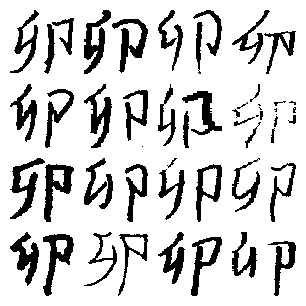 卯卯卯卯
卯卯卯卯
卯卯卯卯
卯卯卯卯